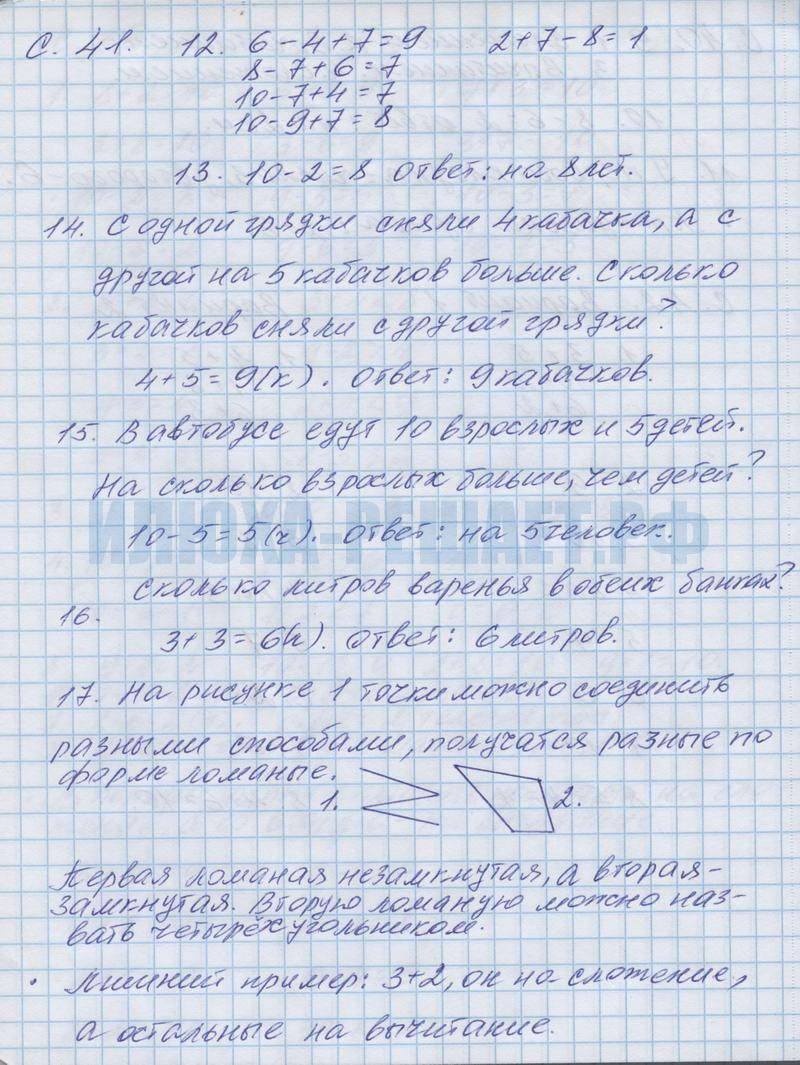 с. 41. 12. 6-4+7=9 2+7-8=1
8-7+6=7
10-7+4=7
10-9+7=8
13. 10-2=8 Ответ: на 8 лет.
14. С одной грядки сняли 4 кабачка, а с
другой на 5 кабачков больше. Сколько
кабачков сняли с другой грядки?
4+5=9(к). Ответ: 9 кабачков.
15. В автобусе едут 10 взрослых и 5 детей.
На сколько взрослых больше, чем детей?
ИЛЮХА-РЕШАЕТ.РФ
10-5=5(ч). Ответ: на 5 человек.
Сколько литров варенья в обеих банках?
16.
3+3=6(л). Ответ: 6 литров.
17. На рисунке 1 точки можно соединить
разными способами, получатся разные по
форме ломаные.
1. 2.
Первая ломаная незамкнутая, а вторая-
замкнутая. Вторую ломаную можно наз-
вать четырёхугольником.
• Лишний пример: 3+2, он на сложение,
а остальные на вычитание.